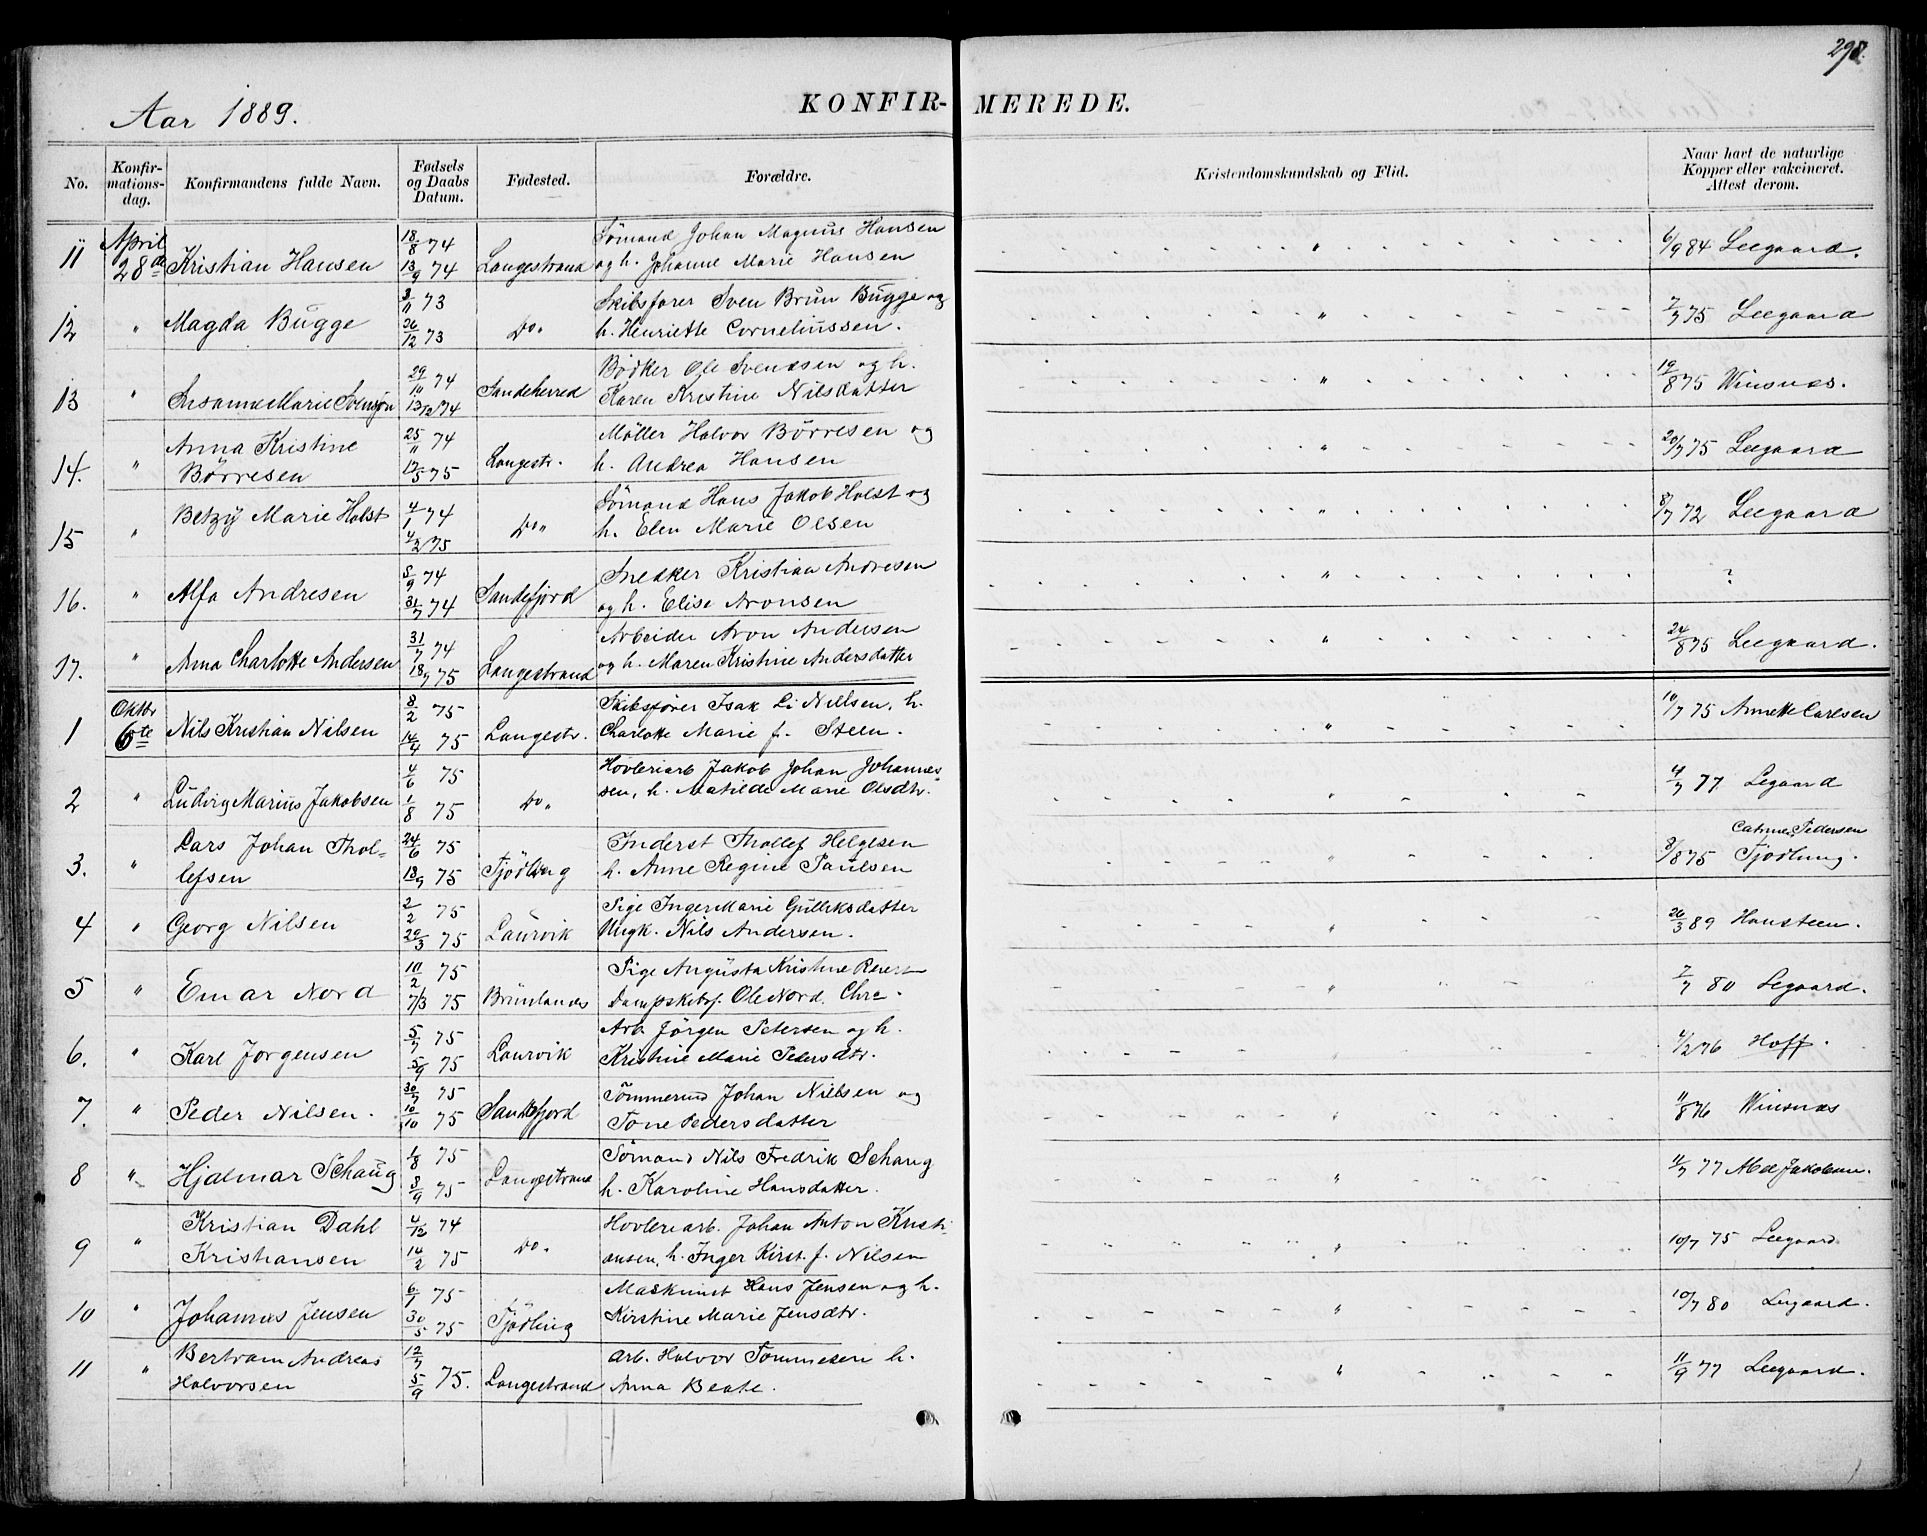 298.
Aar 1889.
KONFIR-MEREDE.
No. Konfir-mations-dag. Konfirmandens fulde Navn. Fødsels og Daabs Datum. Fødested. Forældre. Kristendomskundskab og Flid. Naar havt de naturlige Kopper eller vakcineret. Attest derom.
11 April 28de Kristian Hansen 18/8 74 13/9 74 Langestrand Sømand Johan Magnus Hansen
og h. Johanne Marie Hansen " 6/9 84 Leegaard.
12 " Magda Bugge 3/11 73 26/12 73 Do " Skibsfører Sven Brun Bugge og
h. Henriette Corneliussen. " 7/7 75 Leegaard
13 " Susanne Marie Svensen 29/10 74 13/12 74 Sandeherred Bødker Ole Svendsen og h.
Karen Kristine Nilsdatter " 19/8 75 Winsnæs.
14. " Anna Kristine
Børresen 25/11 74 17/5 75 Langestr. Møller Halvor Børresen og
h. Andrea Hansen " 20/7 75 Leegaard
15 " Betzy Marie Holst 4/1 74 4/2 75 Do " Sømand Hans Jakob Holst og
h. Elen Marie Olsen " 8/7 72 Leegaard
16. " Alfa Andresen 5/9 74 31/7 74 Sandefjord Snedker Kristian Andresen
og h. Elise Aronsen " ?
17. " Anna Charlotte Andersen 31/7 74 18/7 75 Langestrand Arbeider Aron Andersen
og h. Maren Kristine Andersdatter " 24/8 75 Leegaard.
1 Oktbr 6te Nils Kristian Nilsen 8/2 75 14/4 75 Langestr. Skibsfører Isak Li Nielsen, h.
Charlotte Marie f. Steen. " 10/7 75 Annette Carlsen
2 " Ludvig Marius Jakobsen 4/6 75 1/8 75 Do " Høvleriarb Jakob Johan Johannes-
sen, h. Matilde Marie Olsdtr. " 4/7 77 Legaard
3. " Lars Johan Thol-
lefsen 24/6 75 13/9 75 Tjødling Inderst Thollef Helgesen
h. Anne Regine Paulsen " 3/8 75 Cathrine Pedersen
Tjodlung.
4 " Georg Nilsen 2/2 75 29/3 75 Laurvik Pige Inger Marie Gulliksdatter
Ungk. Nils Andersen. " 26/3 89 Hansteen.
5 " Einar Nord 10/2 75 7/3 75 Brunlanes Pige Augusta Kristine
Dampskibsf. Ole Nord. Chra. " 7/7 80 Legaard.
6. " Karl Jørgensen 5/7 75 5/9 75 Laurvik Arb Jørgen Petersen og h.
Kristine Marie Pedersdtr. " 4/2 76 Hoff.
7. " Peder Nilsen. 30/7 75 10/10 75 Sandefjord Tømmermd Johan Nielsen og
Tone Pedersdatter " 11/8 76 Winsnæs
8 " Hjalmar Schaug 1/8 75 3/9 75 Langestrand Sømand Nils Fredrik Schaug
h. Karoline Hansdatter. " 11/7 77 Jakobsen.
9 " Kristian Dahl
Kristiansen 4/12 74 14/2 75 Do. Høvleriarb. Johan Anton Kristi-
ansen, h. Inger Kirst. f. Nilsen " 10/7 75 Leegaard
10 " Johannes Jensen 6/1 75 30/5 75 Tjødling Maskinist Hans Jensen og h.
Kirstine Marie Jensdtr. " 10/7 80 Legaard.
11 " Bertram Andreas
Halvorsen 12/7 5/9 75. Langestrand Arb. Halvor Tommesen h.
Anna Beate. " 11/9 77 Leegaard.